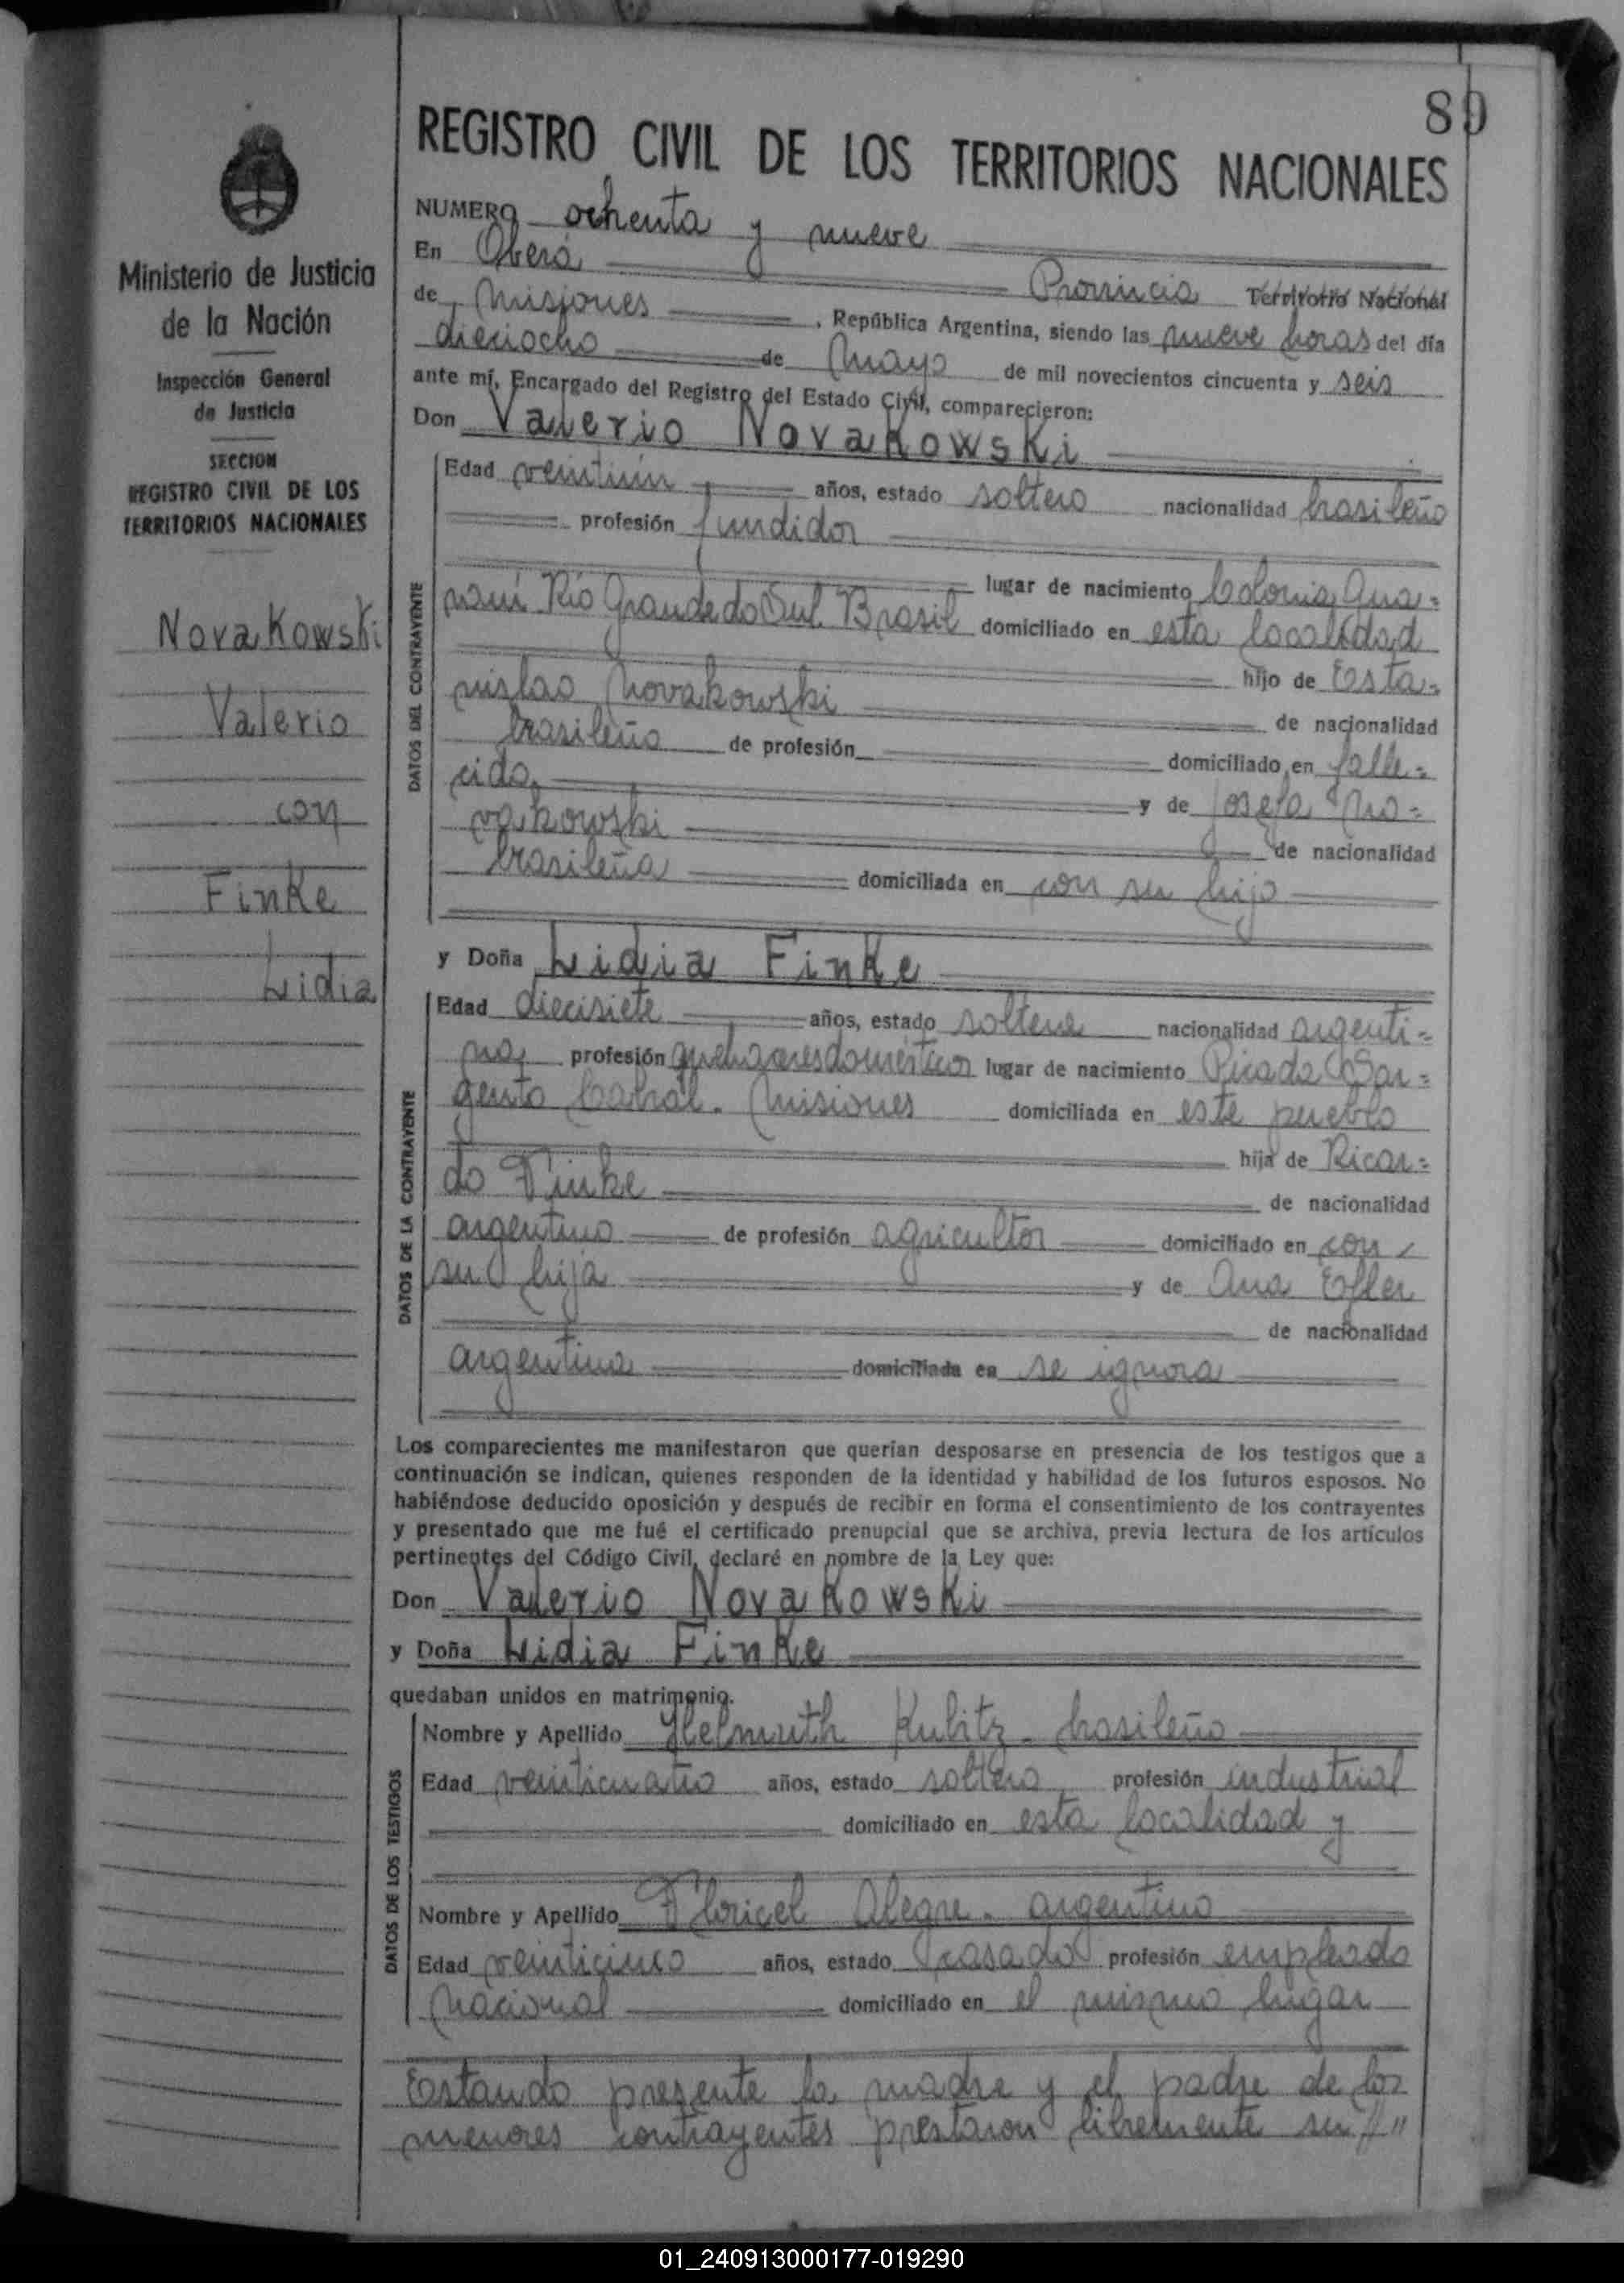 89
REGISTRO CIVIL DE LOS TERRITORIOS NACIONALES
Ministerio de Justicia
de la Nación
Inspección General
de Justicia
SECCION
REGISTRO CIVIL DE LOS
TERRITORIOS NACIONALES
Novakowski
Valerio
con
Finke
Lidia
NUMERO ochenta y nueve
En Oberá Provincia Territorio Nacional
de Misiones , República Argentina, siendo las nueve horas del día
dieciocho de Mayo de mil novecientos cincuenta y seis
ante mí, Encargado del Registro del Estado Civil, comparecieron:
Don Valerio Novakowski
DATOS DEL CONTRAYENTE
Edad veintiún años, estado soltero nacionalidad brasileño
profesión fundidor
lugar de nacimiento Colonia Gua=
raní Río Grande do Sul. Brasil domiciliado en esta localidad
hijo de Esta=
nislao Novakowski de nacionalidad
brasileño de profesión domiciliado en falle=
cido. y de Josefa No=
vakowski de nacionalidad
brasileña domiciliada en con su hijo
y Doña Lidia Finke
DATOS DE LA CONTRAYENTE
Edad diecisiete años, estado soltera nacionalidad argenti=
na profesión quehaceres domésticos lugar de nacimiento Picada Sar=
gento Cabral. Misiones domiciliada en este pueblo
hija de Ricar=
do Finke de nacionalidad
argentino de profesión agricultor domiciliado en con
su hija y de Ana Efler
de nacionalidad
argentina domiciliada en se ignora
Los comparecientes me manifestaron que querían desposarse en presencia de los testigos que a
continuación se indican, quienes responden de la identidad y habilidad de los futuros esposos. No
habiéndose deducido oposición y después de recibir en forma el consentimiento de los contrayentes
y presentado que me fué el certificado prenupcial que se archiva, previa lectura de los artículos
pertinentes del Código Civil, declaré en nombre de la Ley que:
Don Valerio Novakowski
y Doña Lidia Finke
quedaban unidos en matrimonio.
DATOS DE LOS TESTIGOS
Nombre y Apellido Helmuth Kubitz. brasileño
Edad veinticuatro años, estado soltero profesión industrial
domiciliado en esta localidad y
Nombre y Apellido Floricel Alegre. argentino
Edad veinticinco años, estado casado profesión empleado
Nacional domiciliado en el mismo lugar
Estando presente la madre y el padre de los
menores contrayentes prestaron libremente su //"
01_240913000177-019290